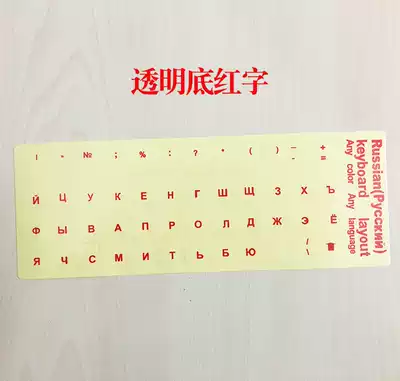 透明底红字
! " № ; % : ? * ( ) _ +
- =
Й Ц У К Е Н Г Ш Щ З Х Ъ
Ф Ы В А П Р О Л Д Ж Э Ё
/
Я Ч С М И Т Ь Б Ю \
Russian(Русский)
keyboard layout
Any color Any language